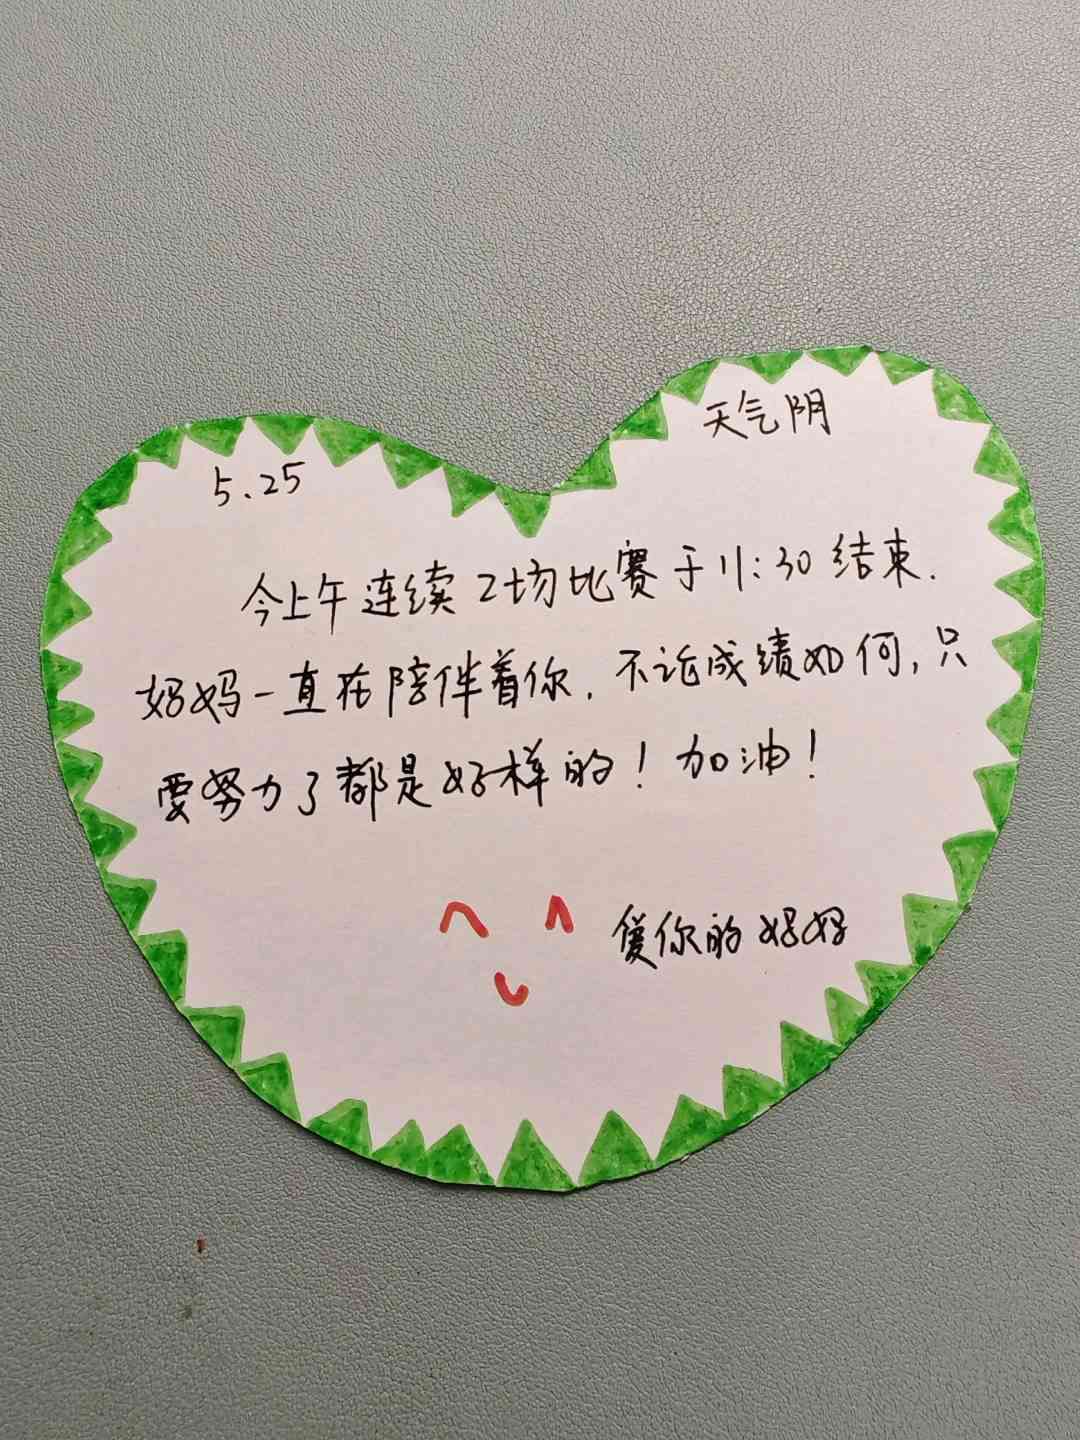 5.25
天气阴
今上午连续2场比赛于11:30结束.
妈妈一直在陪伴着你.不论成绩如何,只
要努力了都是好样的!加油!
爱你的妈妈